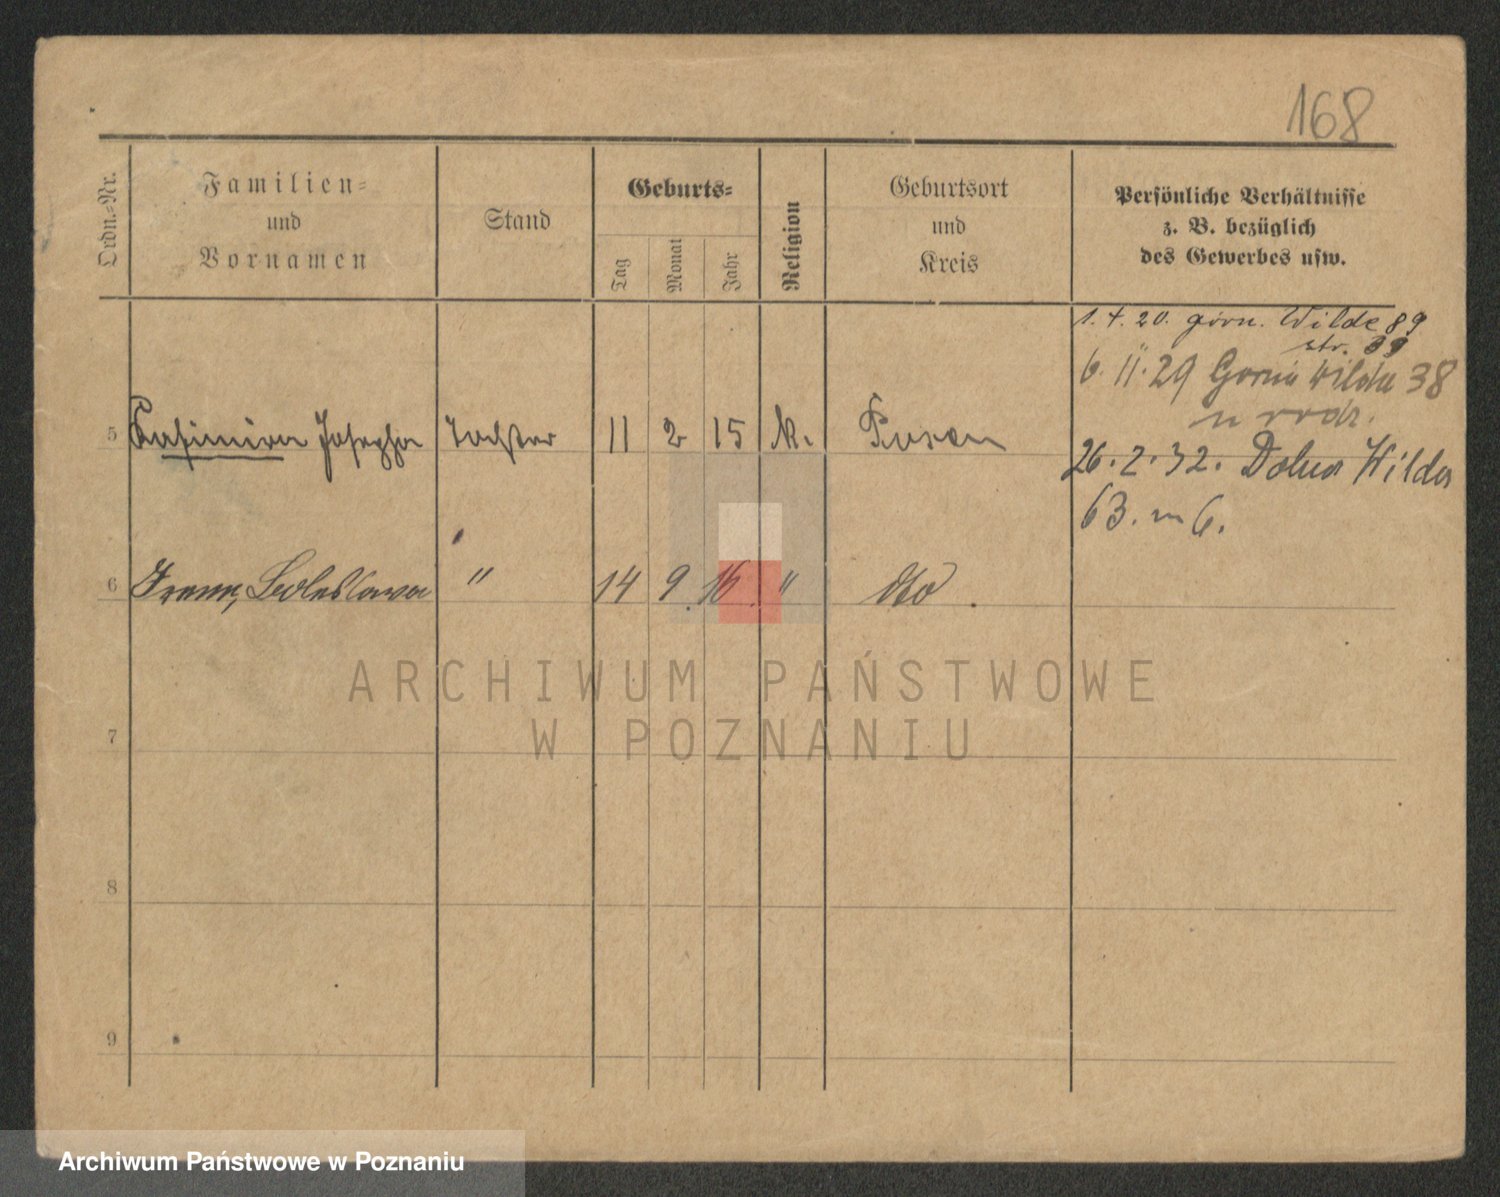 168
Ordn.-Nr.
Familien-
und
Vornamen
Stand
Geburts-
Tag
Monat
Jahr
Religion
Geburtsort
und
Kreis
Persönliche Verhältnisse
z. B. bezüglich
des Gewerbes usw.
1. 4. 20. górn. Wilde 89
str. 89
6. 11. 29 Gorna Wilda 38
u rodz.
5 Kasimira Josepha Tochter 11 2 15 k. Posen
26. 2. 32. Dolna Wilda
63. m 6.
6 Irene, Boleslawa " 14 9. 16. " dto.
7
8
9
ARCHIWUM PAŃSTWOWE
W POZNANIU
Archiwum Państwowe w Poznaniu